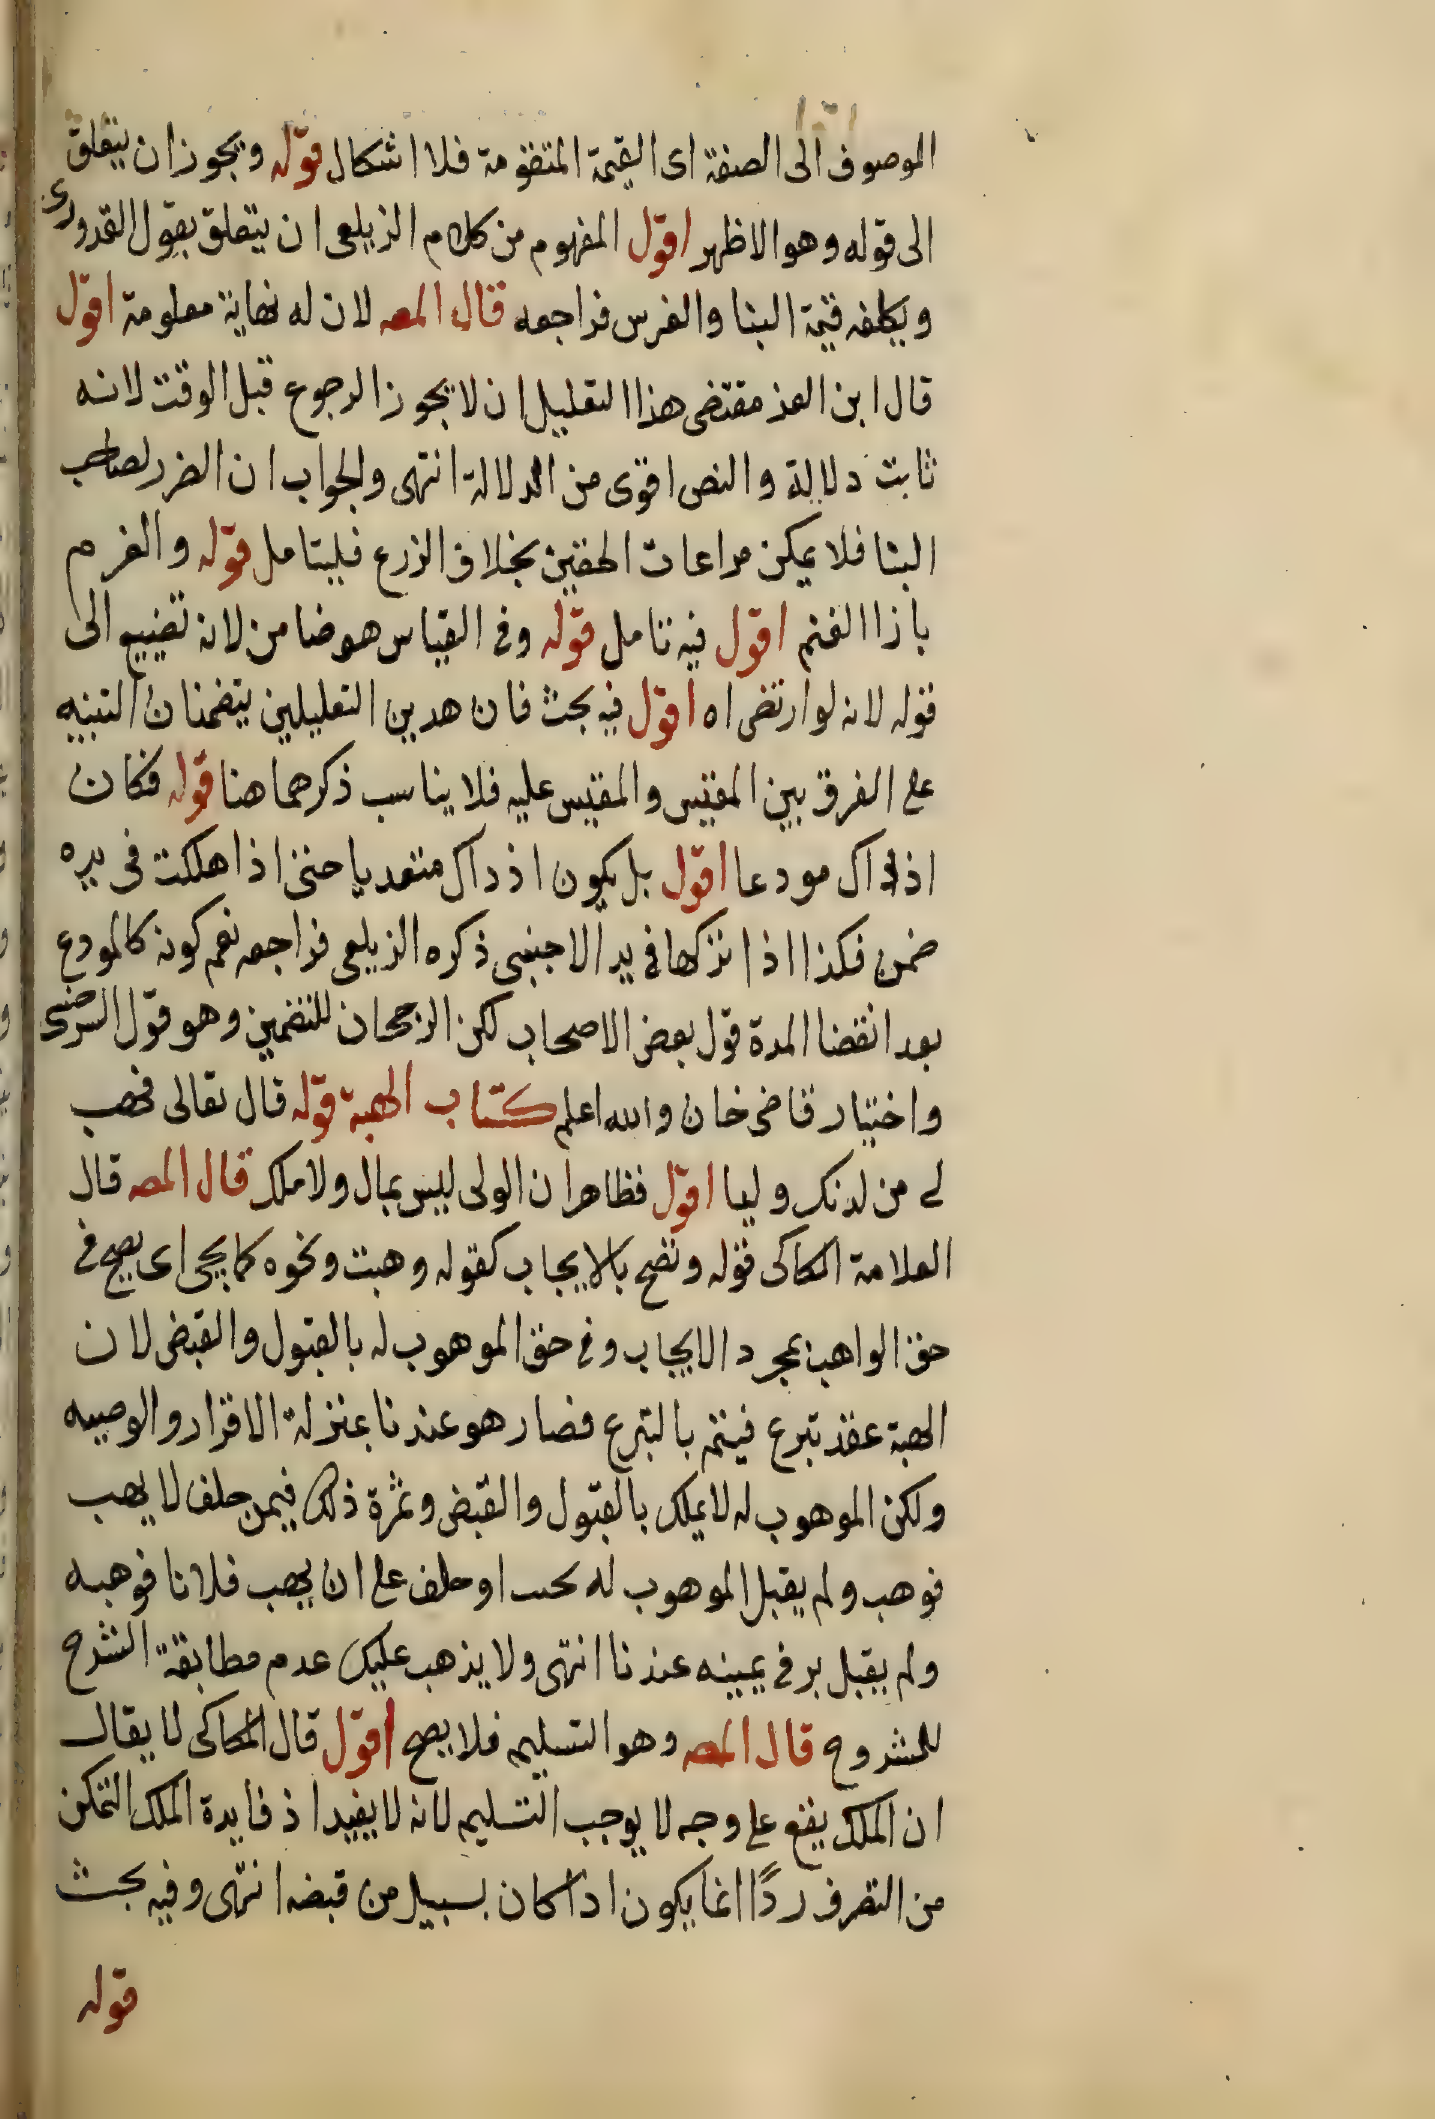 الموصوف الى الصفة اى القيمة المتقومة فلا اشكال قوله ويجوز ان يتعلق
الى قوله وهو الاظهر اقول المفهوم من كلام الزيلعى ان يتعلق بقول القدورى
ويكلفه قيمة البنا والغرس فراجعه قال المصـ لان له نهاية معلومة اقول
قال ابن العز مقتضى هذا التعليل ان لا يجوز الرجوع قبل الوقت لانه
ثابت دلالة والنص اقوى من الدلالة انتهى والجواب ان الضرر لصاحب
البنا فلا يمكن مراعات الحقين بخلاف الزرع فليتامل قوله والغرم
بازا الغنم اقول فيه تامل قوله وفى القياس هو ضامن لانه تضييع الى
قوله لانه لو ارتضى اه اقول فيه بحث فان هدين التعليلين يتضمنان التنبيه
على الفرق بين المقيس والمقيس عليه فلا يناسب ذكرهما هنا قوله فكان
اذ ذاك مودعا اقول بل يكون اذ داك متعديا حتى اذا هلكت فى يده
ضمن فكذا اذا تركها فى يد الاجنبى ذكره الزيلعى فراجعه نعم كونه كالمودع
بعد انقضا المدة قول بعض الاصحاب لكن الرجحان للتضمين وهو قول السرخسى
واختيار قاضى خان والله اعلم كتاب الهبة قوله قال تعالى فهب
لى من لدنك وليا اقول فظاهر ان الولى ليس بمال ولا ملك قال المصـ قال
العلامة الكاكى قوله وتصح بالايجاب كقوله وهبت ونحوه كما يجى اى يصح فى
حق الواهب بمجرد الايجاب وفى حق الموهوب له بالقبول والقبض لان
الهبة عقد تبرع فيتم بالتبرع فصار هو عندنا بمنزلة الاقرار والوصيه
ولكن الموهوب له لا يملك بالقبول والقبض وثمرة ذلك فيمن حلف لا يهب
فوهب ولم يقبل الموهوب له يحنث او حلف على ان يهب فلانا فوهبه
ولم يقبل بر فى يمينه عندنا انتهى ولا يذهب عليك عدم مطابقة الشرح
للمشروح قال المصـ وهو التسليم فلا يصح اقول قال الكاكى لا يقال
ان الملك يقع على وجه لا يوجب التسليم لانه لا يفيد اذ فايدة الملك التمكن
من التصرف ردًا انما يكون اذا كان بسبيل من قبضه انتهى وفيه بحث
قوله